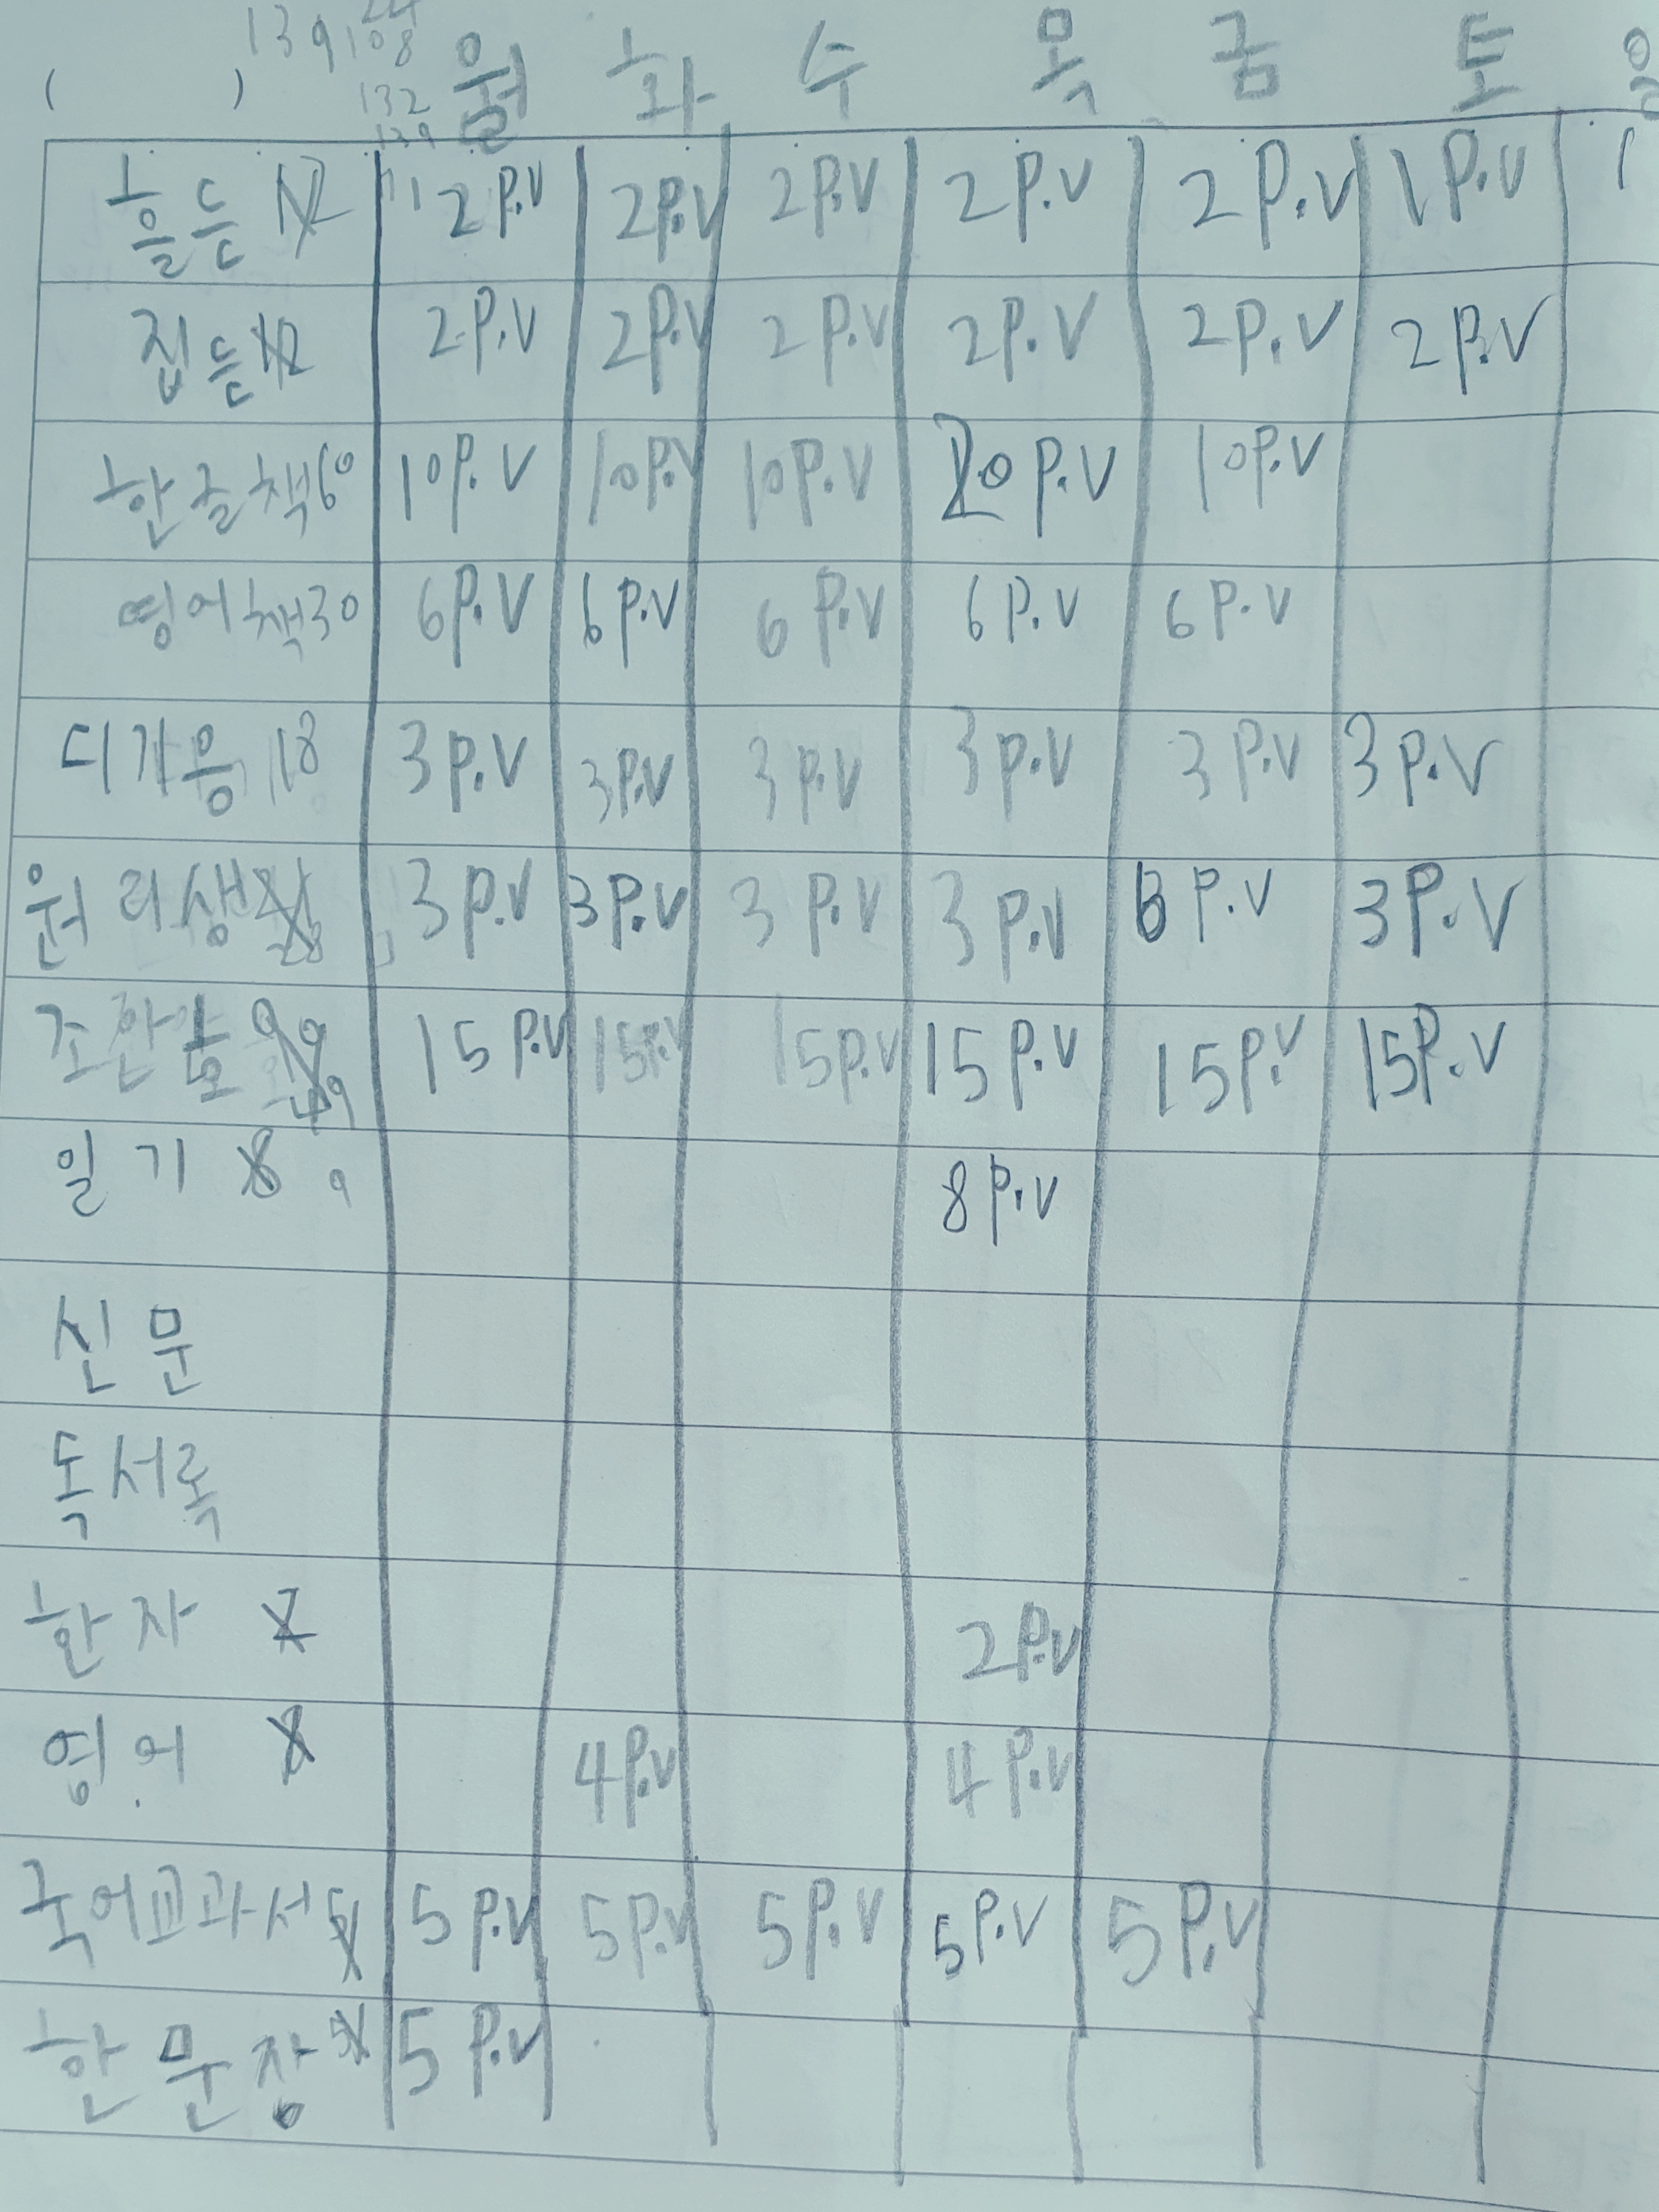 139 108
132
139
( ) 월 화 수 목 금 토 일
흘듣 12 2P.V 2P.V 2P.V 2P.V 2P.V 1P.V 1
집듣 12 2P.V 2P.V 2P.V 2P.V 2P.V 2P.V
한글책60 10P.V 10P.V 10P.V 20P.V 10P.V
영어책30 6P.V 6P.V 6P.V 6P.V 6P.V
디가응 18 3P.V 3P.V 3P.V 3P.V 3P.V 3P.V
원리생 3P.V 3P.V 3P.V 3P.V P.V 3P.V
조한 15P.V 15P.V 15P.V 15P.V 15P.V 15P.V
일기 8 9 8P.V
신문
독서록
한자 2P.V
영어 8 4P.V 4P.V
국어교과서 5P.V 5P.V 5P.V 5P.V 5P.V
한문장 5P.V